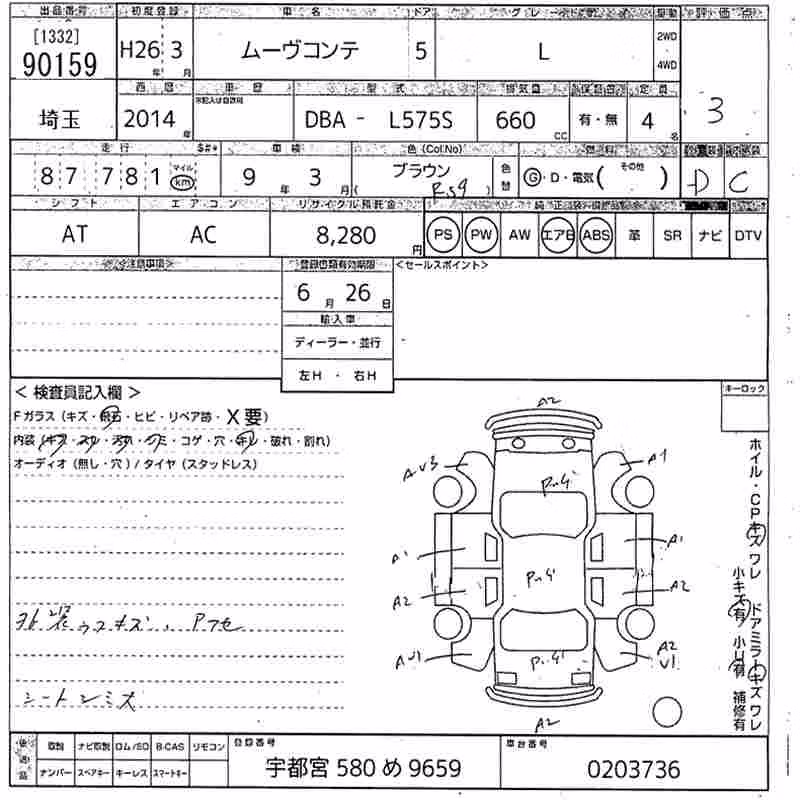 出品番号 初度登録 車名 ドア グレード 駆動 評価点
[1332]
90159 H26年3月 ムーヴコンテ 5 L 2WD 4WD 3
西暦 車歴 型式 排気量 定員
埼玉 2014年 DBA - L575S 660cc 有・無 4名
走行 車検 色(Col.No) 燃料 外装 内装
87,781 マイル km 9年3月 ブラウン R59 色替 G・D・電気( その他 ) D C
シフト エアコン リサイクル預託金
AT AC 8,280円 PS PW AW エアB ABS 革 SR ナビ DTV
<注意事項> 登録書類有効期限 <セールスポイント>
6月26日
輸入車
ディーラー・並行
左H ・ 右H
<検査員記入欄> キーロック
Fガラス(キズ・飛石・ヒビ・リペア跡・X要)
内装(キズ・スレ・汚れ・シミ・コゲ・穴・キレ・破れ・割れ)
オーディオ(無し・穴)/タイヤ(スタッドレス)
A2
AU3 A1
P.キ
A1 A1
P.キ
A2 A2
AU1 P.キ A2
U1
A2
ホイル・CPキズワレ ドアミラーキズワレ
小キズ有 小U有 補修有
外装ウスキズ、Pアセ
シートシミ大
後送品 取説 ナビ取説 ロム/SD B-CAS リモコン 登録番号 車台番号
ナンバー スペアキー キーレス スマートキー 宇都宮 580 め 9659 0203736